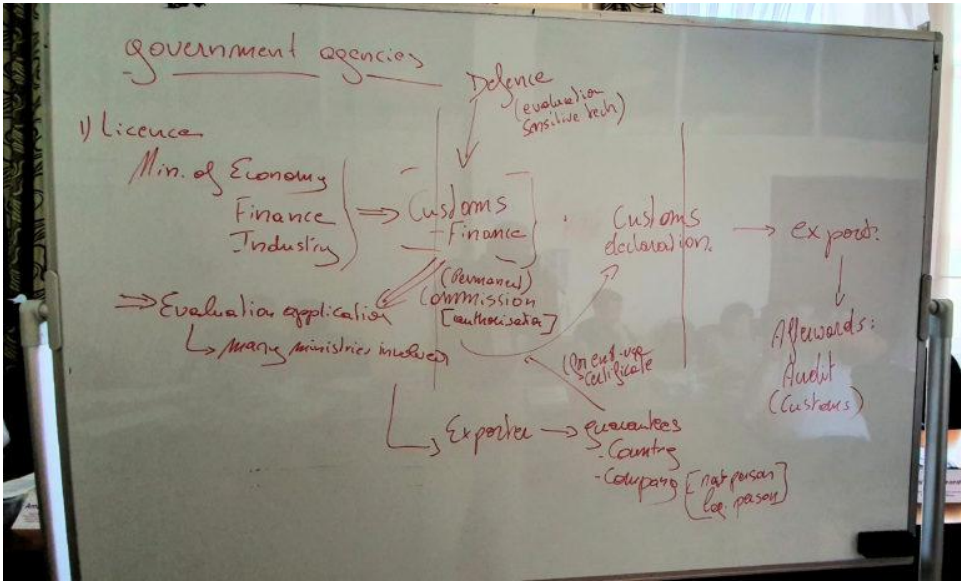 government agencies
Defence
(evaluation
sensitive tech)
1) Licence
Min. of Economy
Finance
Industry
Customs
- Finance
(Permanent)
Commission
[authorisation]
Customs
declaration.
export.
Afterwards:
Audit
(Customs)
Evaluation application
many ministries involved
end-use
certificate
Exporter
guarantees
- Country
- Company [nat person
leg. person]